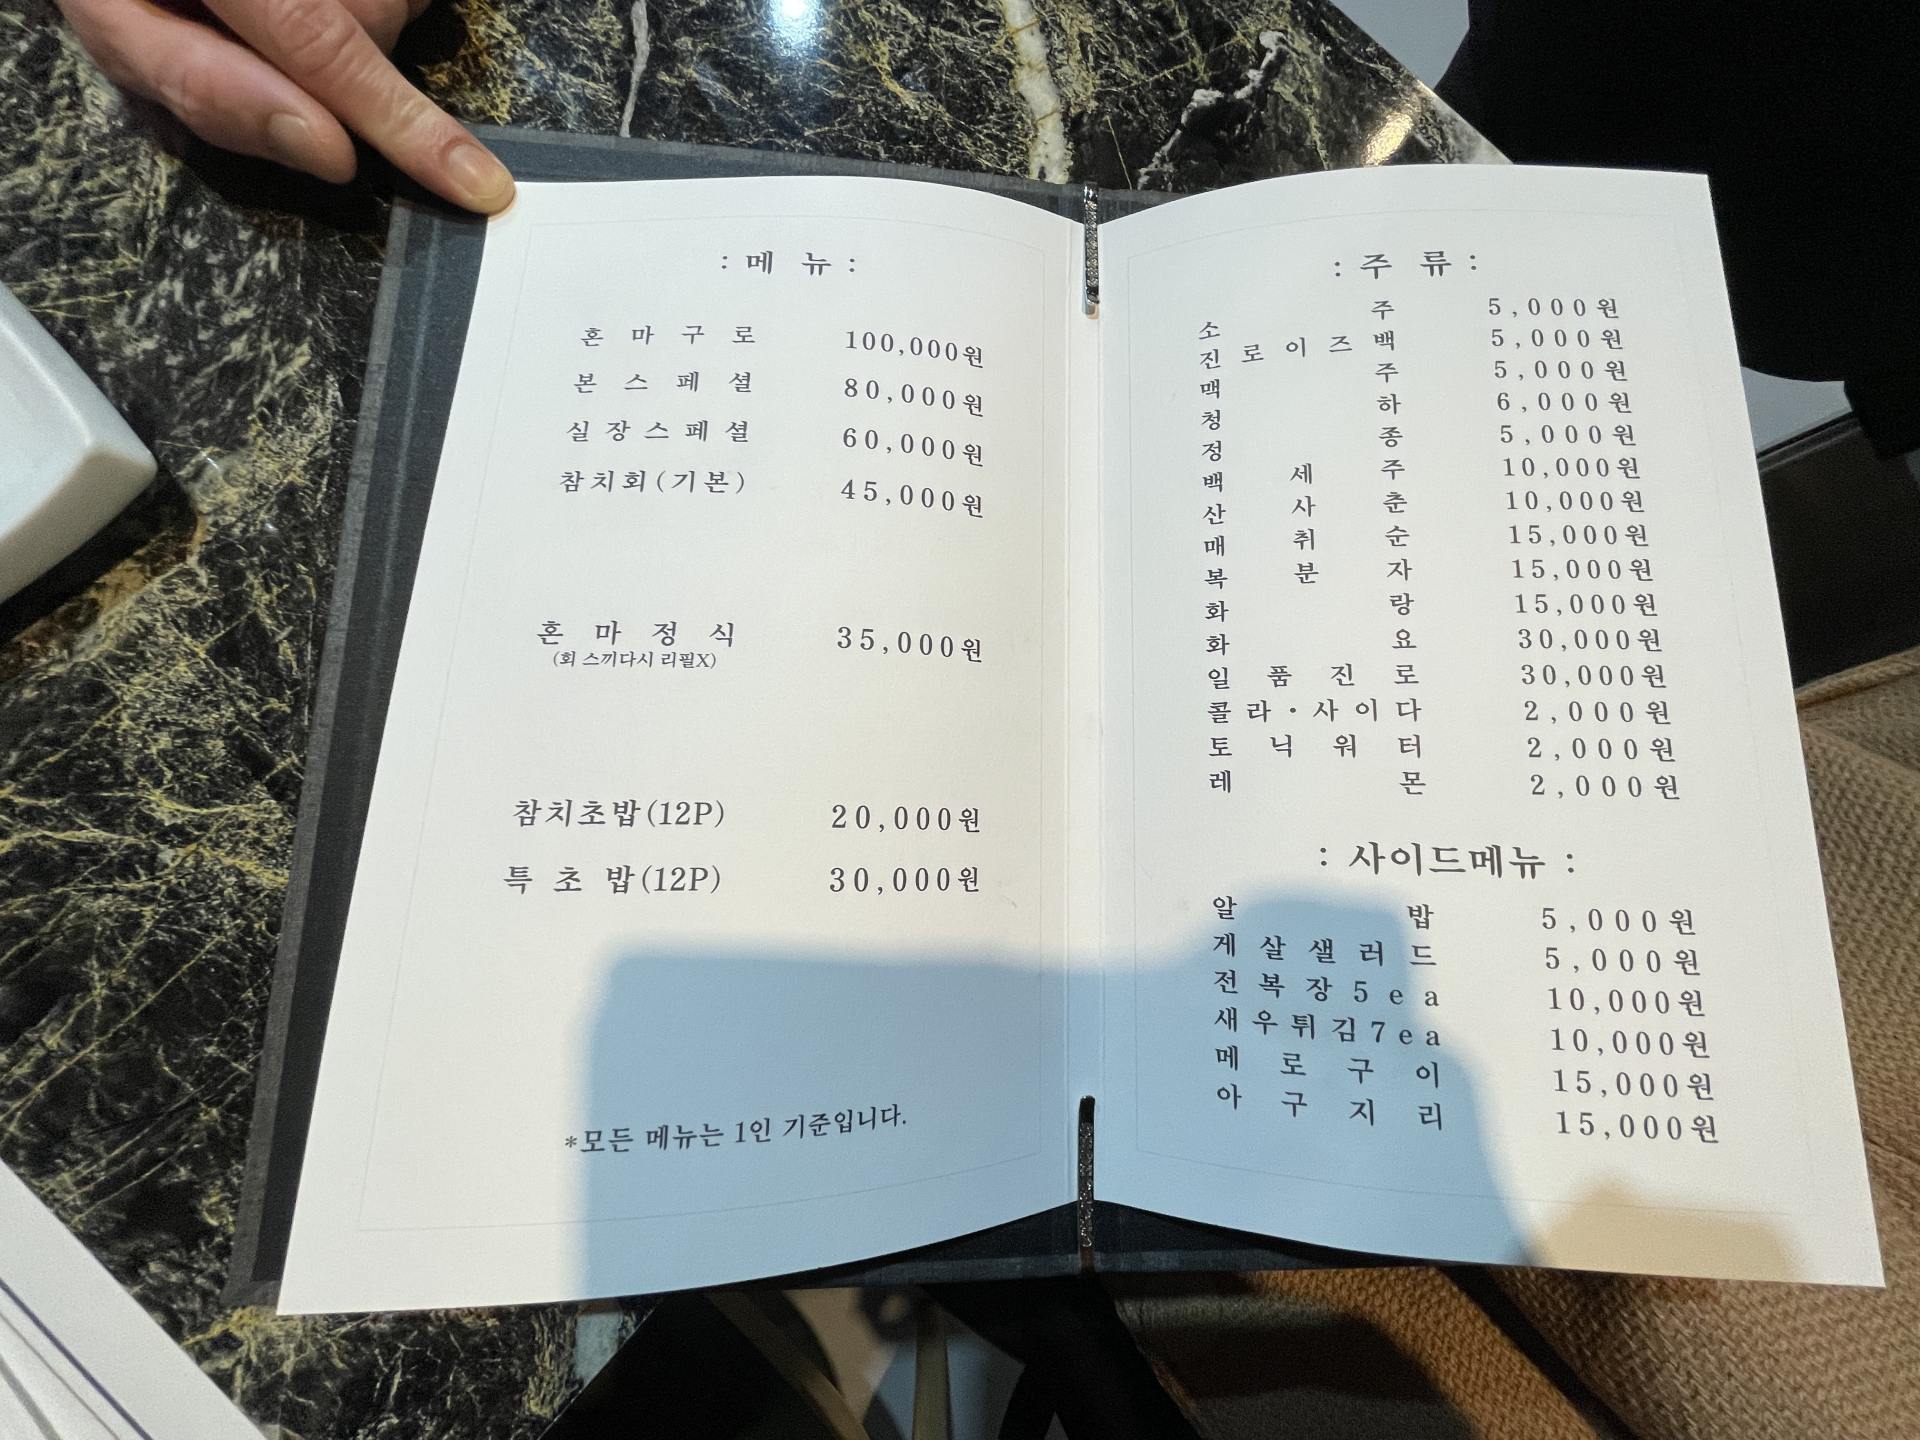 : 메 뉴 :
혼 마 구 로 100,000원
본 스 페 셜 80,000원
실 장 스 페 셜 60,000원
참치회(기본) 45,000원
혼 마 정 식 35,000원
(회 스끼다시 리필X)
참치초밥(12P) 20,000원
특 초 밥(12P) 30,000원
*모든 메뉴는 1인 기준입니다.
: 주 류 :
소 주 5,000원
진 로 이 즈 백 5,000원
맥 주 5,000원
청 하 6,000원
정 종 5,000원
백 세 주 10,000원
산 사 춘 10,000원
매 취 순 15,000원
복 분 자 15,000원
화 랑 15,000원
화 요 30,000원
일 품 진 로 30,000원
콜 라 · 사 이 다 2,000원
토 닉 워 터 2,000원
레 몬 2,000원
: 사이드메뉴 :
알 밥 5,000원
게 살 샐 러 드 5,000원
전 복 장 5 e a 10,000원
새 우 튀 김 7 e a 10,000원
메 로 구 이 15,000원
아 구 지 리 15,000원